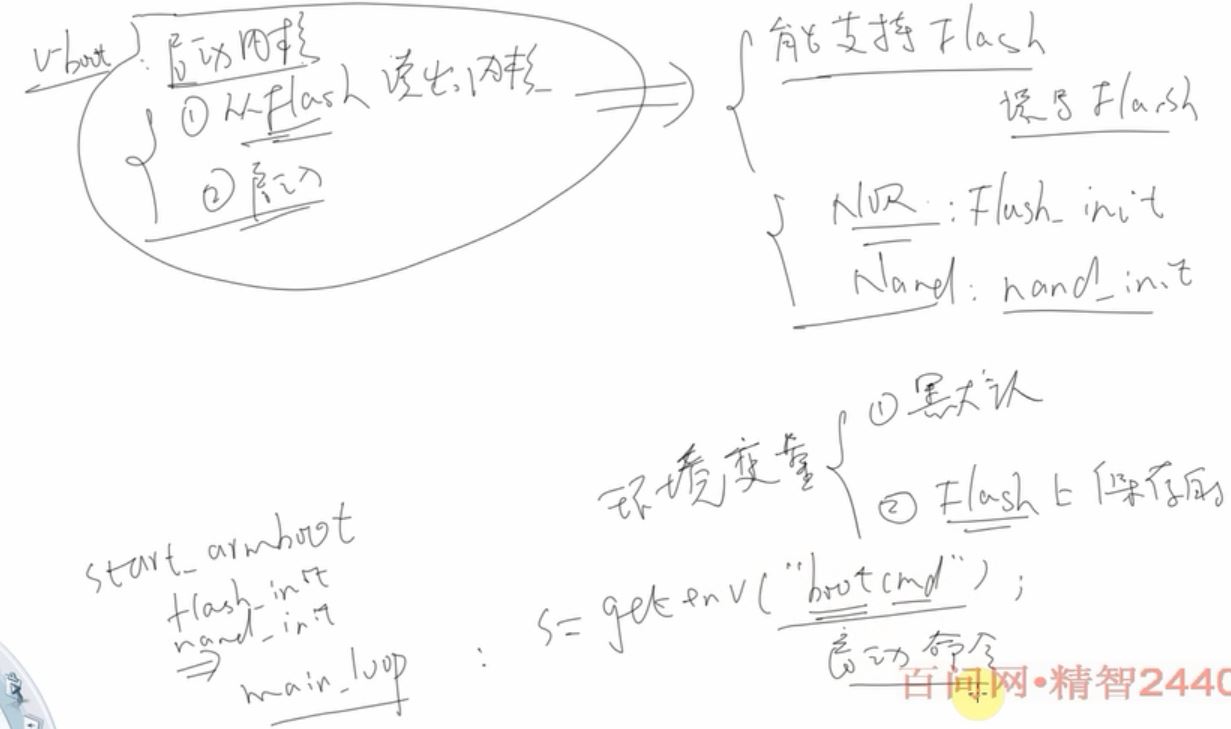 u-boot: 启动内核
① 从Flash读出内核
② 启动
能支持Flash
读写Flash
NOR: Flash_init
Nand: nand_init
环境变量
① 默认
② Flash上保存的
start_armboot
flash_init
nand_init
main_loop : s=getenv("bootcmd");
启动命令
百问网•精智2440